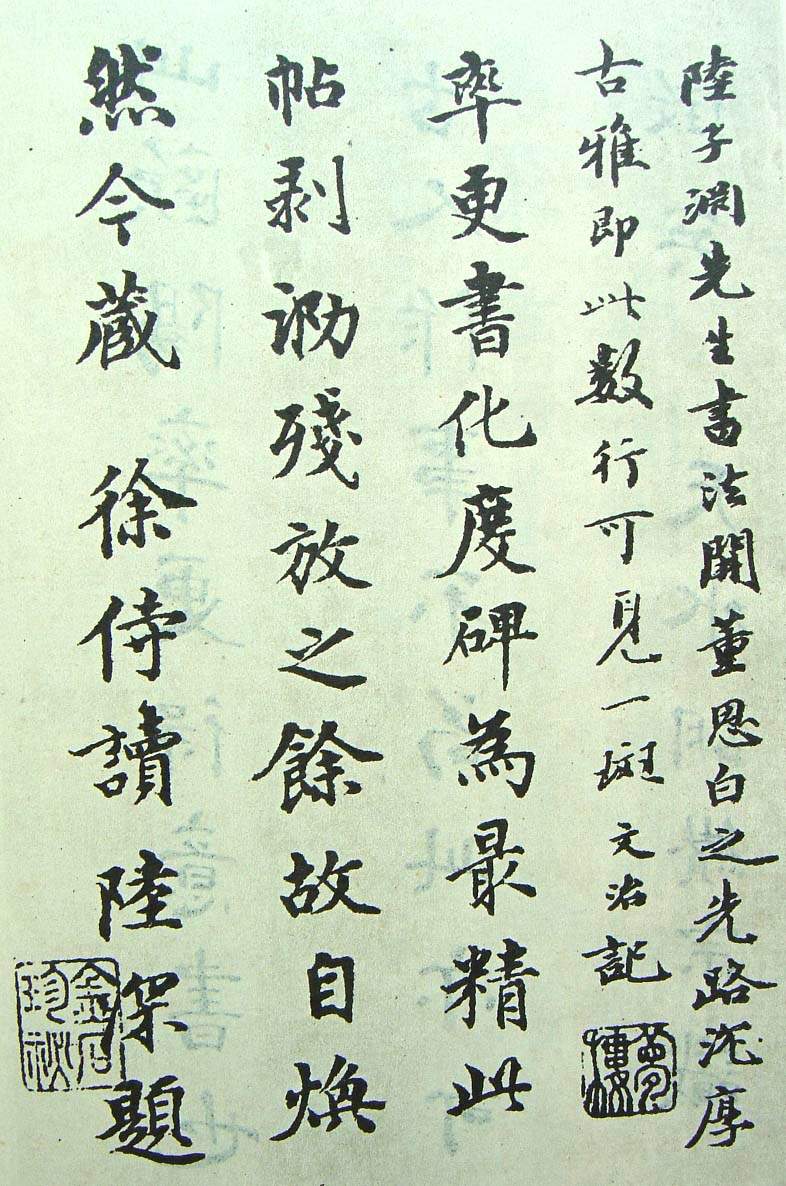 陸子淵先生書法開董思白之先路沈厚
古雅即此數行可見一斑文治記
夢樓
率更書化度碑為最精此
帖剥泐殘放之餘故自煥
然今藏 徐侍讀陸深題
金石珍祕